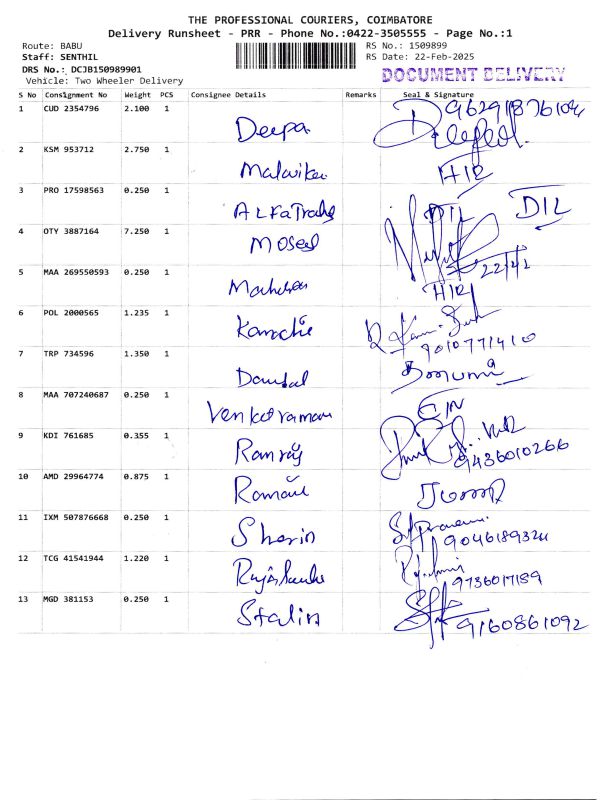 THE PROFESSIONAL COURIERS, COIMBATORE
Delivery Runsheet - PRR - Phone No.:0422-3505555 - Page No.:1
Route: BABU RS No.: 1509899
Staff: SENTHIL RS Date: 22-Feb-2025
DRS No.: DCJB150989901
Vehicle: Two Wheeler Delivery DOCUMENT DELIVERY
S No Consignment No Weight PCS Consignee Details Remarks Seal & Signature
1 CUD 2354796 2.100 1 Deepa
2 KSM 953712 2.750 1 HIR
3 PRO 17598563 0.250 1 DIL DIL
4 OTY 3887164 7.250 1 22/2/2
5 MAA 269550593 0.250 1 HIR
6 POL 2000565 1.235 1 9010771410
7 TRP 734596 1.350 1
8 MAA 707240687 0.250 1 Venkatraman
9 KDI 761685 0.355 1 Ramraj 9436010266
10 AMD 29964774 0.875 1
11 IXM 507876668 0.250 1 Sherin 9046189324
12 TCG 41541944 1.220 1 9736017189
13 MGD 381153 0.250 1 Stalin 9160861092